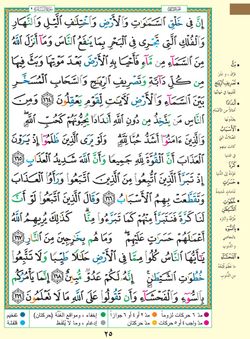 إِنَّ فِي خَلْقِ ٱلسَّمَٰوَٰتِ وَٱلْأَرْضِ وَٱخْتِلَٰفِ ٱلَّيْلِ وَٱلنَّهَارِ
وَٱلْفُلْكِ ٱلَّتِي تَجْرِي فِي ٱلْبَحْرِ بِمَا يَنفَعُ ٱلنَّاسَ وَمَآ أَنزَلَ ٱللَّهُ
مِنَ ٱلسَّمَآءِ مِن مَّآءٍ فَأَحْيَا بِهِ ٱلْأَرْضَ بَعْدَ مَوْتِهَا وَبَثَّ فِيهَا
مِن كُلِّ دَآبَّةٍ وَتَصْرِيفِ ٱلرِّيَٰحِ وَٱلسَّحَابِ ٱلْمُسَخَّرِ
بَيْنَ ٱلسَّمَآءِ وَٱلْأَرْضِ لَءَايَٰتٍ لِّقَوْمٍ يَعْقِلُونَ ١٦٤
وَمِنَ ٱلنَّاسِ مَن يَتَّخِذُ مِن دُونِ ٱللَّهِ أَندَادًا يُحِبُّونَهُمْ كَحُبِّ ٱللَّهِ
وَٱلَّذِينَ ءَامَنُوٓا۟ أَشَدُّ حُبًّا لِّلَّهِ وَلَوْ يَرَى ٱلَّذِينَ ظَلَمُوٓا۟ إِذْ يَرَوْنَ
ٱلْعَذَابَ أَنَّ ٱلْقُوَّةَ لِلَّهِ جَمِيعًا وَأَنَّ ٱللَّهَ شَدِيدُ ٱلْعَذَابِ ١٦٥
إِذْ تَبَرَّأَ ٱلَّذِينَ ٱتُّبِعُوا۟ مِنَ ٱلَّذِينَ ٱتَّبَعُوا۟ وَرَأَوُا۟ ٱلْعَذَابَ
وَتَقَطَّعَتْ بِهِمُ ٱلْأَسْبَابُ ١٦٦ وَقَالَ ٱلَّذِينَ ٱتَّبَعُوا۟ لَوْ أَنَّ
لَنَا كَرَّةً فَنَتَبَرَّأَ مِنْهُمْ كَمَا تَبَرَّءُوا۟ مِنَّا كَذَٰلِكَ يُرِيهِمُ ٱللَّهُ
أَعْمَٰلَهُمْ حَسَرَٰتٍ عَلَيْهِمْ وَمَا هُم بِخَٰرِجِينَ مِنَ ٱلنَّارِ ١٦٧
يَٰٓأَيُّهَا ٱلنَّاسُ كُلُوا۟ مِمَّا فِي ٱلْأَرْضِ حَلَٰلًا طَيِّبًا وَلَا تَتَّبِعُوا۟
خُطُوَٰتِ ٱلشَّيْطَٰنِ إِنَّهُۥ لَكُمْ عَدُوٌّ مُّبِينٌ ١٦٨ إِنَّمَا يَأْمُرُكُم
بِٱلسُّوٓءِ وَٱلْفَحْشَآءِ وَأَن تَقُولُوا۟ عَلَى ٱللَّهِ مَا لَا تَعْلَمُونَ ١٦٩
٢٥